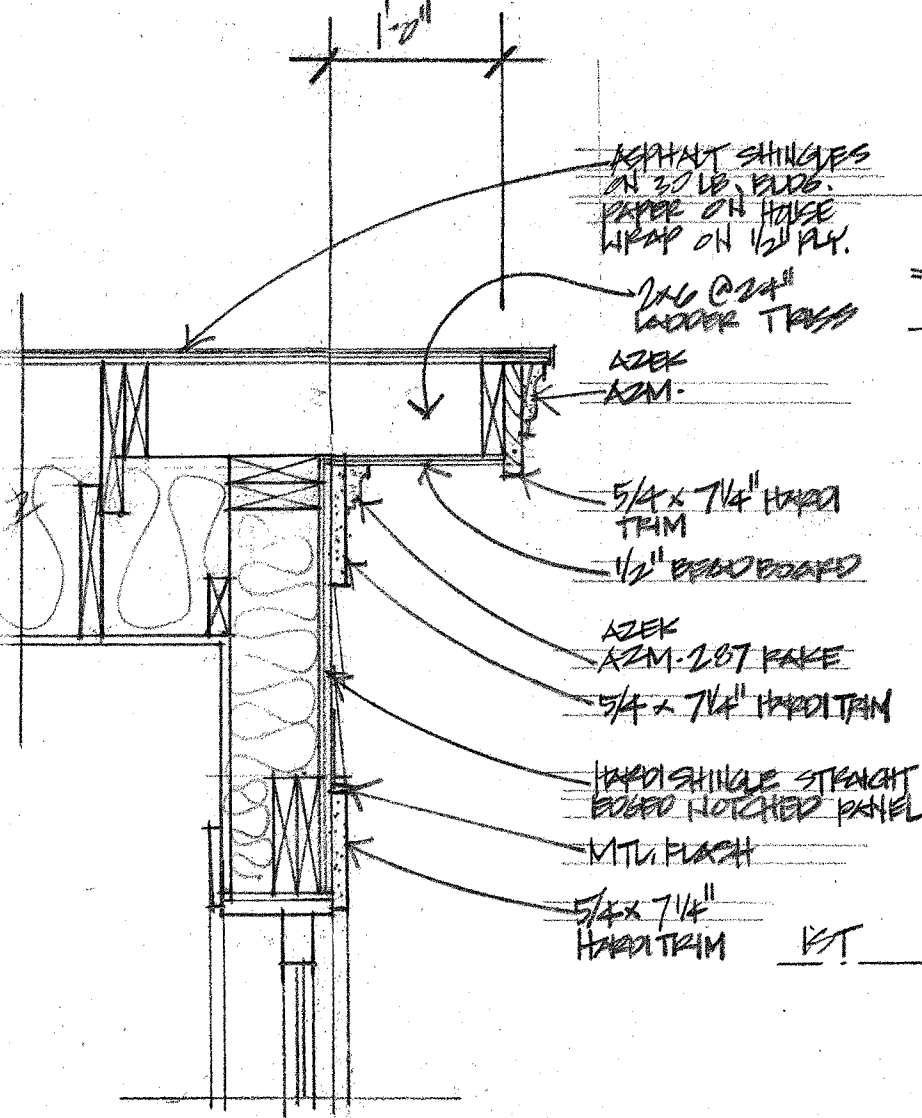 1'-0"
ASPHALT SHINGLES
ON 30 LB. BLDG.
PAPER ON HOUSE
WRAP ON 1/2" PLY.
2x6 @ 24"
LADDER TRUSS
AZEK
AZM.
5/4 x 7 1/4" HARDI
TRIM
1/2" BEADBOARD
AZEK
AZM-287 RAKE
5/4 x 7 1/4" HARDITRIM
HARDISHINGLE STRAIGHT
EDGED NOTCHED PANEL
MTL. FLASH
5/4 x 7 1/4"
HARDITRIM